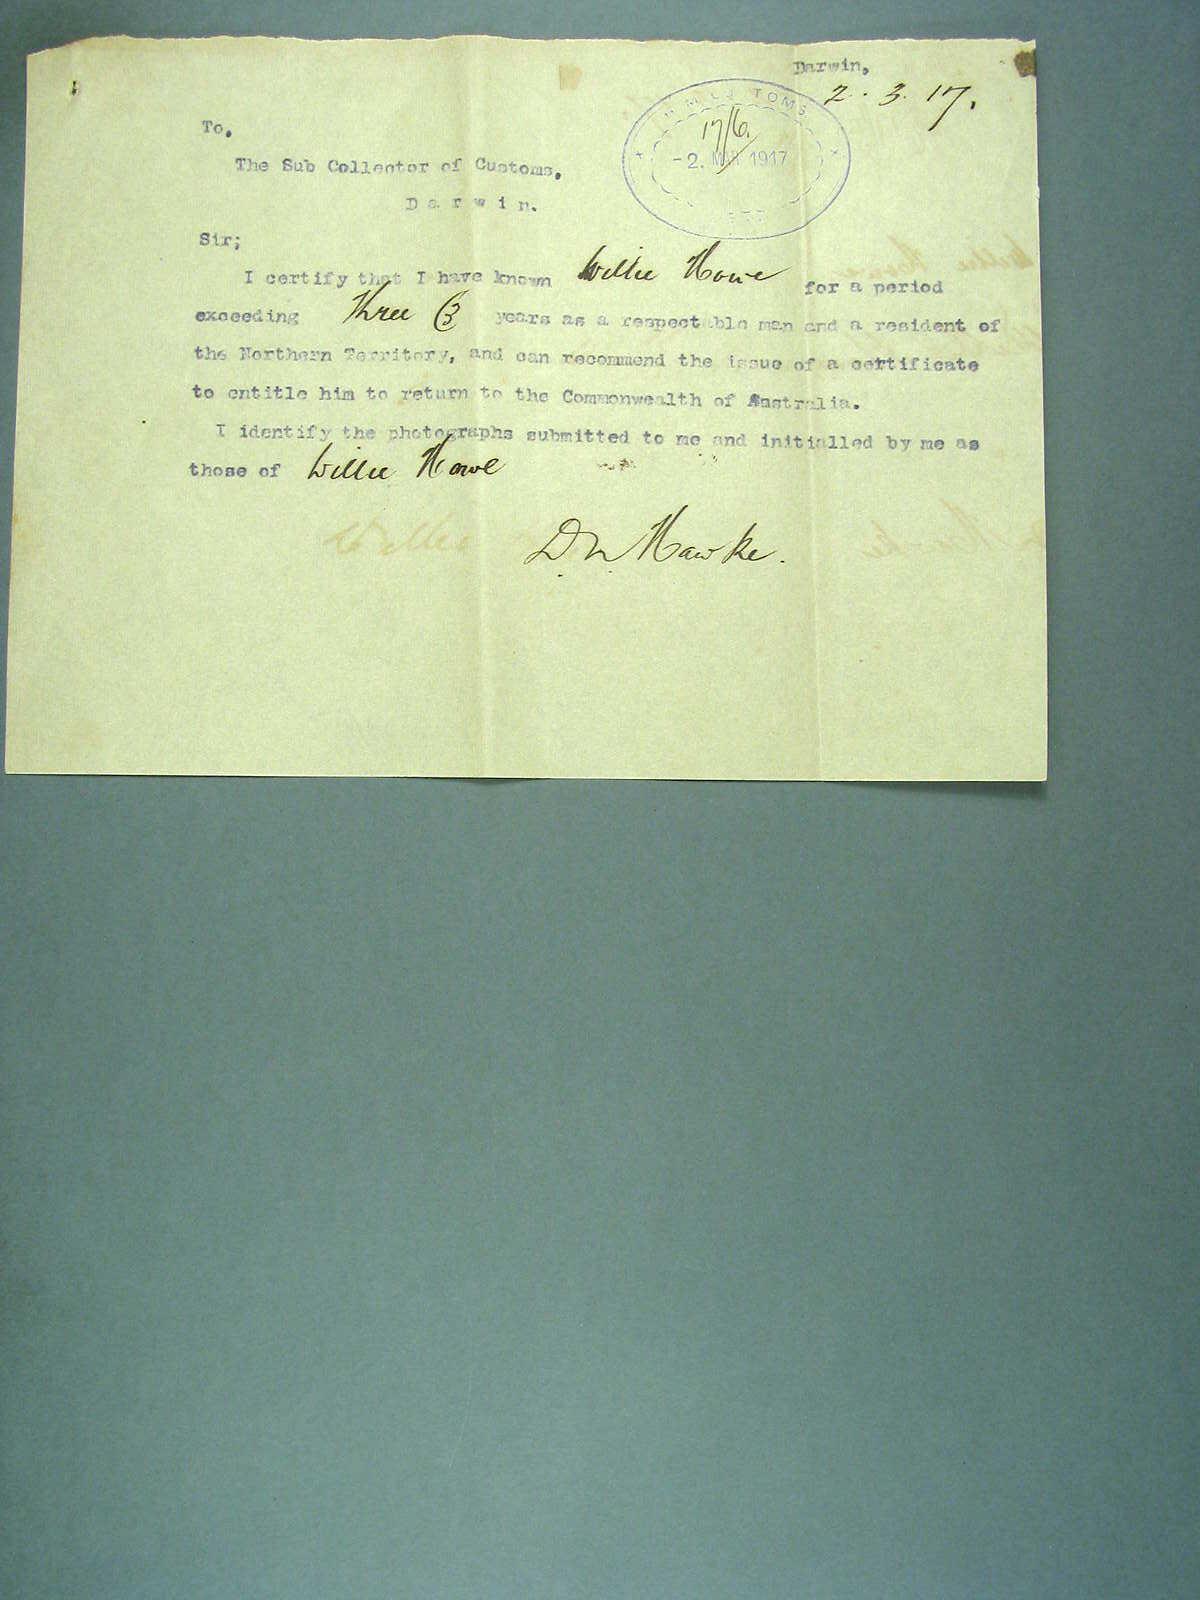 Darwin,
2. 3. 17.
H.M. CUSTOMS
17/6.
-2. MAR 1917
To,
The Sub Collector of Customs,
Darwin.
Sir;
I certify that I have known Willie Howe for a period
exceeding Three (3 years as a respectable man and a resident of
the Northern Territory, and can recommend the issue of a certificate
to entitle him to return to the Commonwealth of Australia.
I identify the photographs submitted to me and initialled by me as
those of Willie Howe
D. L. Hawke.